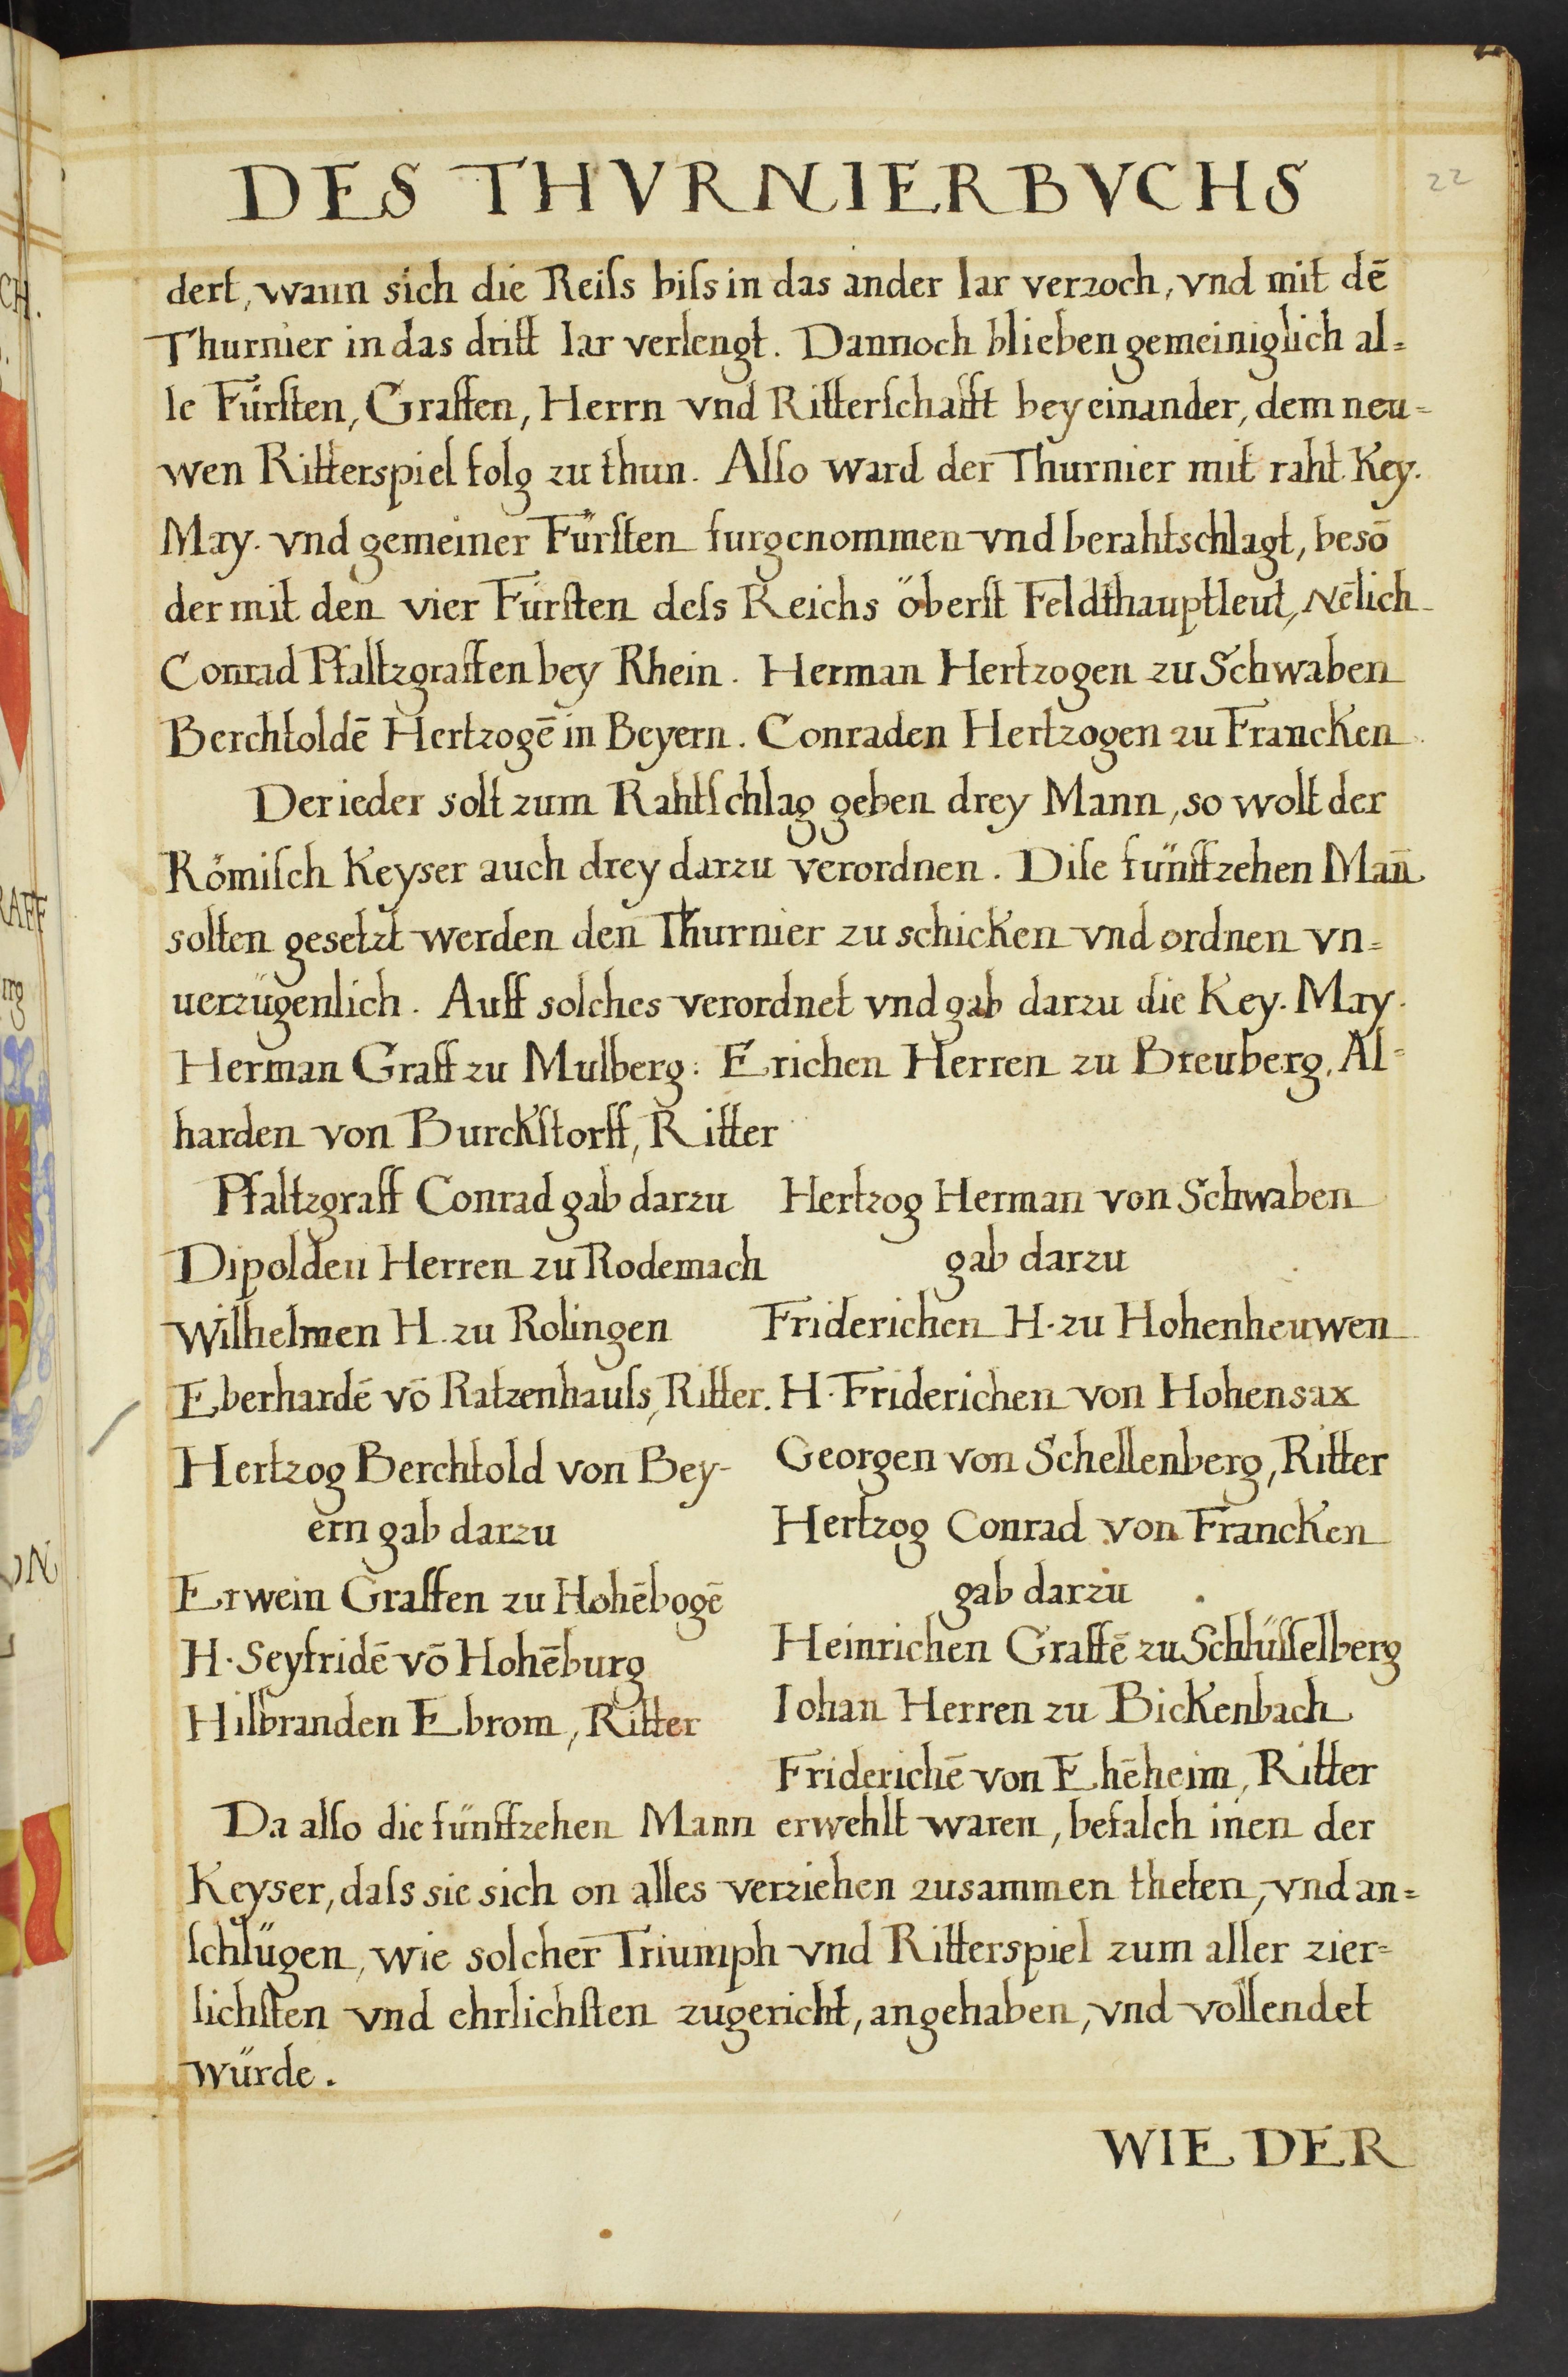 DES THVRNIERBVCHS
22
dert, wann sich die Reiſs biſs in das ander Iar verzoch, vnd mit dē
Thurnier in das dritt Iar verlengt. Dannoch blieben gemeiniglich al=
le Fürſten, Graffen, Herrn vnd Ritterſchafft bey einander, dem neu=
wen Ritterspiel folg zu thun. Alſo ward der Thurnier mit raht Key.
May. vnd gemeiner Fürſten furgenommen vnd berahtschlagt, besō
der mit den vier Fürſten deſs Reichs öberſt Feldthauptleut, Nēlich
Conrad Pfaltzgraffen bey Rhein. Herman Hertzogen zu Schwaben
Berchtoldē Hertzogē in Beyern. Conraden Hertzogen zu Francken
Der ieder solt zum Rahtſchlag geben drey Mann, so wolt der
Römiſch Keyser auch drey darzu verordnen. Diſe fünffzehen Man̄
solten gesetzt werden den Thurnier zu schicken vnd ordnen vn=
uerzügenlich. Auff solches verordnet vnd gab darzu die Key. May.
Herman Graff zu Mulberg: Erichen Herren zu Breuberg, Al=
harden von Burckſtorff, Ritter
Pfaltzgraff Conrad gab darzu
Dipolden Herren zu Rodemach
Wilhelmen H. zu Rolingen
Eberhardē vō Ratzenhauſs, Ritter.
Hertzog Berchtold von Bey-
ern gab darzu
Erwein Graffen zu Hohēbogē
H. Seyfridē vō Hohēburg
Hilbranden Ebrom, Ritter
Hertzog Herman von Schwaben
gab darzu
Friderichen H. zu Hohenheuwen
H. Friderichen von Hohensax
Georgen von Schellenberg, Ritter
Hertzog Conrad von Francken
gab darzu
Heinrichen Graffē zu Schlüſſelberg
Iohan Herren zu Bickenbach
Friderichē von Ehēheim, Ritter
Da alſo die fünffzehen Mann erwehlt waren, befalch inen der
Keyser, daſs sie sich on alles verziehen zusammen theten, vnd an=
ſchlügen, wie solcher Triumph vnd Ritterspiel zum aller zier=
lichſten vnd ehrlichſten zugericht, angehaben, vnd vollendet
würde.
WIE DER